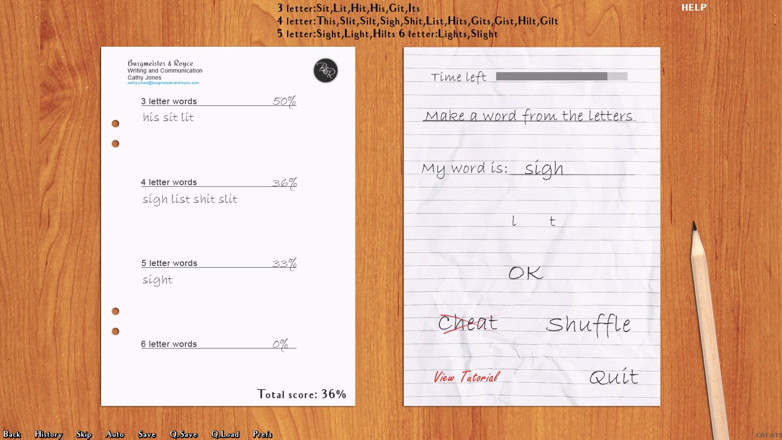 3 letter:Sit,Lit,Hit,His,Git,Its
4 letter:This,Slit,Silt,Sigh,Shit,List,Hits,Gits,Gist,Hilt,Gilt
5 letter:Sight,Light,Hilts 6 letter:Lights,Slight
HELP
Burgmeister & Royce
Writing and Communication
Cathy Jones
cathy.jones@burgmeisterandroyce.com
B&R
3 letter words 50%
his sit lit
4 letter words 36%
sigh list shit slit
5 letter words 33%
sight
6 letter words 0%
Total score: 36%
Time left
Make a word from the letters
My word is: sigh
l t
OK
Cheat Shuffle
View Tutorial Quit
Back History Skip Auto Save Q.Save Q.Load Prefs